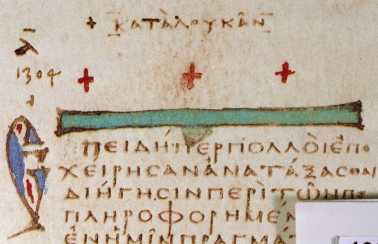 + ΚΑΤᾺΛΟΥΚΑΝ
1304
ΕΠΕΙΔΉΠΕΡΠΟΛΛΟῚΕΠΕ
ΧΕΙΡΗϹΑΝΑΤΑΞΑϹΘΑΙ
ΔΙΗΓΗϹΙΝΠΕΡῚΤΩ͂ΝΠ
ΠΛΗΡΟΦΟΡΗΜΕΝ
ΕΝΗΜΙ͂ΝΠΡΑΓΜΑ